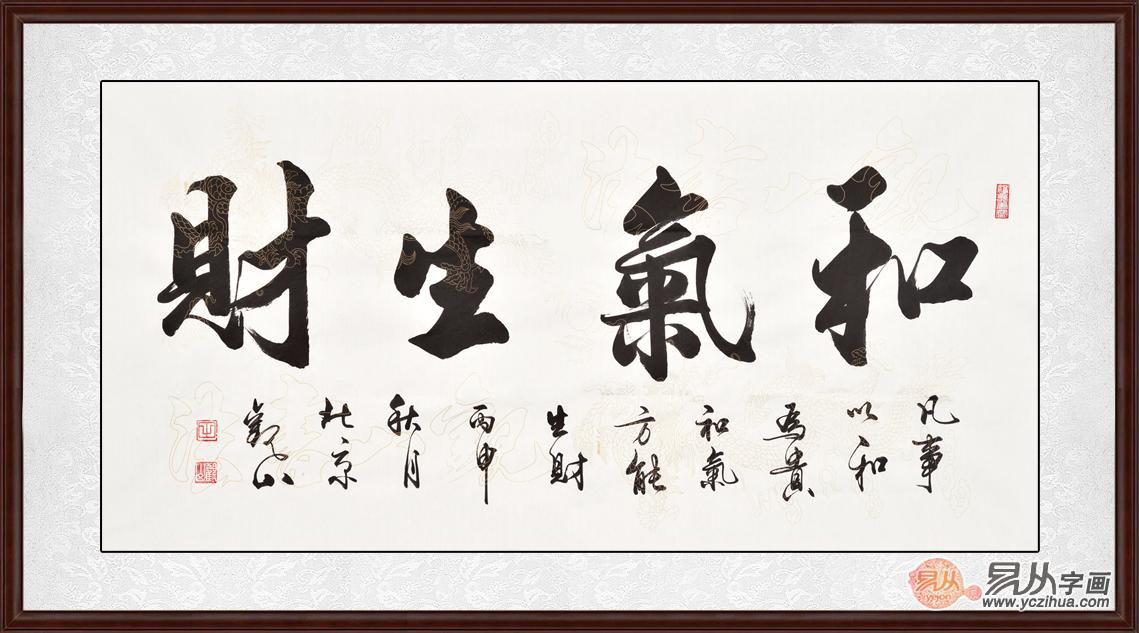 和氣生財
凡事
以和
為貴
和氣
方能
生財
丙申
秋月
北京
觀山
易从
yicon
易从字画
www.yczihua.com